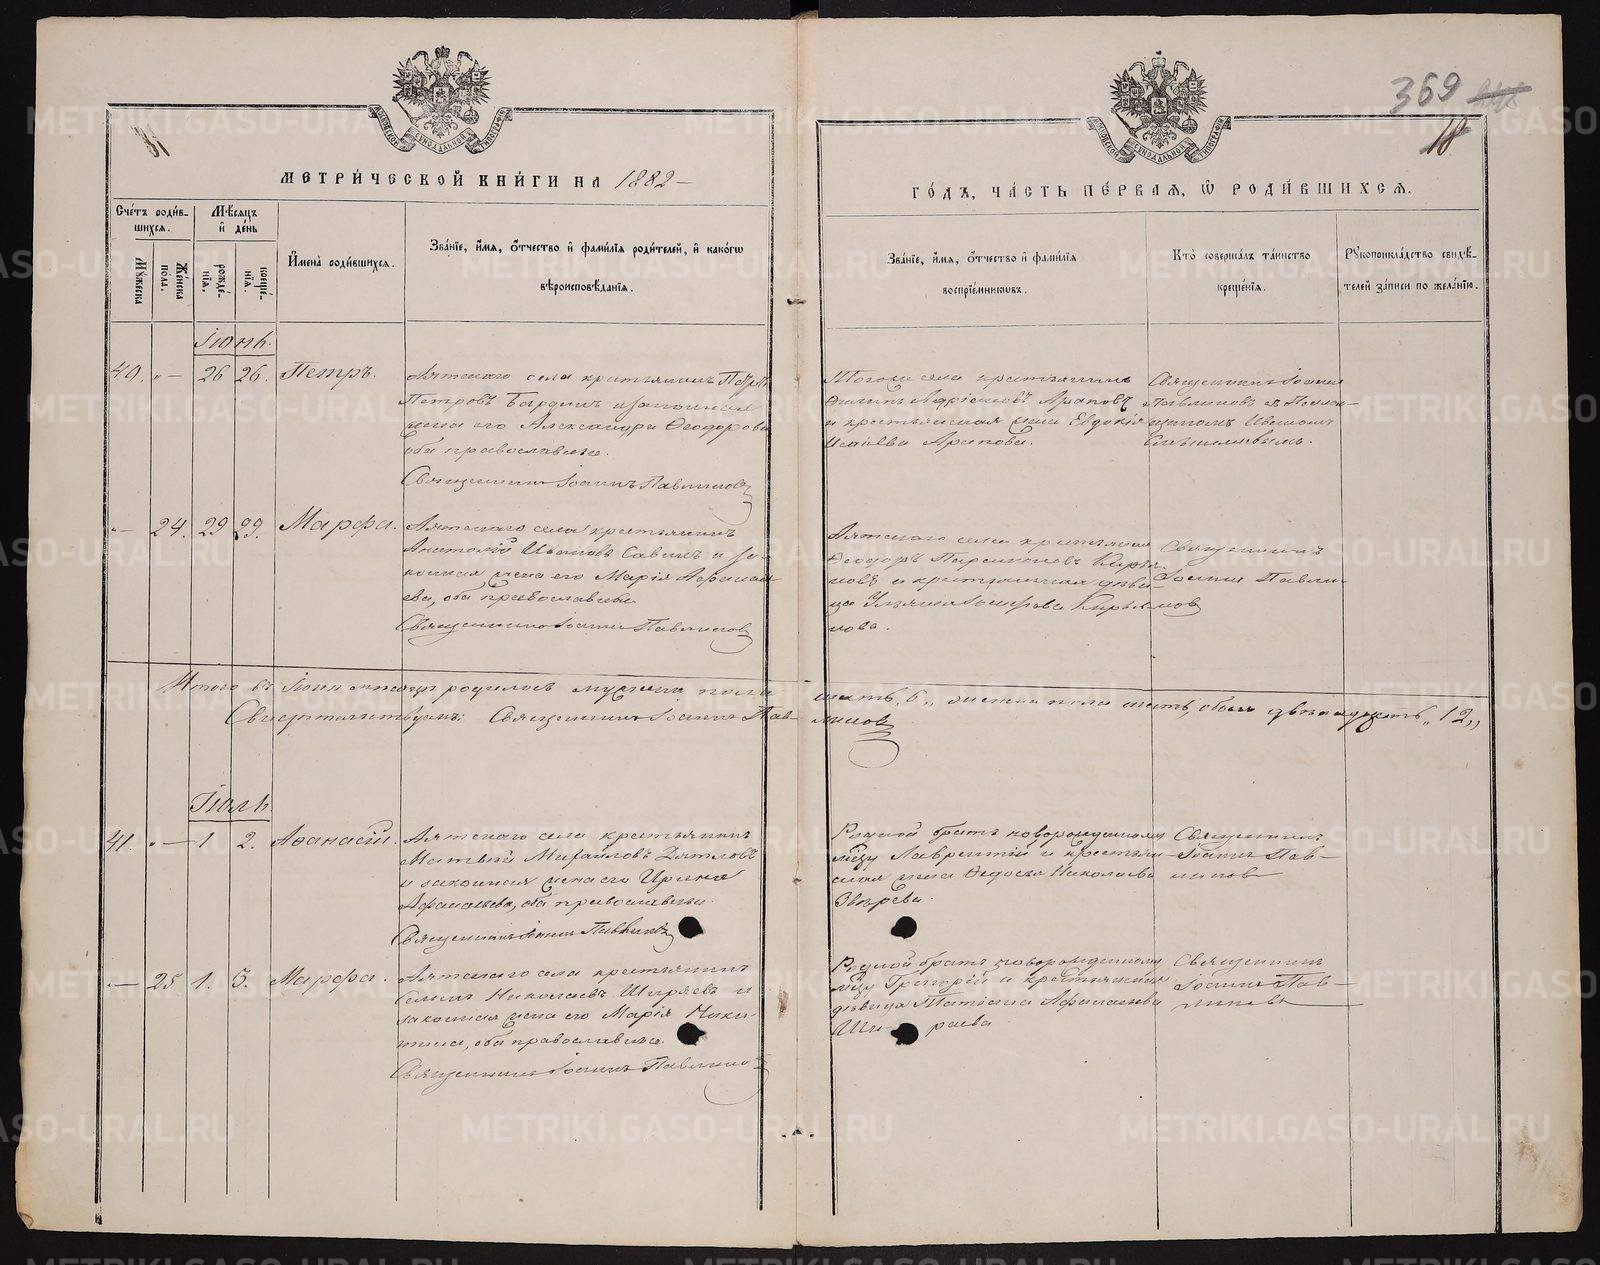 369
18
МЕТРИ́ЧЕСКОЙ КНИ́ГИ НА 1882
ГО́ДЪ, ЧА́СТЬ ПЕ́РВАЯ, Ѿ РОДИ́ВШИХСЯ.
Сче́тъ роди́в-
шихся.
Мꙋ́жеска
Же́нска
пола.
Мѣ́сяцъ
и҆ де́нь
рожде́-
нїя.
креще́-
нїя.
И҆мена̀ роди́вшихся.
Зва́нїе, и҆́мя, ѻ҆́тчество и҆ фами́лїѧ роди́телей, и҆ како́гѡ
вѣроисповѣ́данїѧ.
Зва́нїе, и҆́мя, ѻ҆́тчество и҆ фами́лїѧ
воспрїе́мниковъ.
Кто̀ соверша́лъ та́инство
креще́нїѧ.
Рꙋкоприкла́дство свидѣ́-
телей за́писи по жела́нїю.
Іюнь.
40. „ — 26 26. Петръ.
Аятскаго села крестьянинъ Петръ
Петровъ и законная
жена его Александра Ѳеодорова
оба православные.
Священникъ Іоаннъ Павлиновъ
Тогоже села крестьянинъ
Филипъ Араповъ
и крестьянская жена Евдокія
Арапова.
Священникъ Іоаннъ
Павлиновъ съ Псалом-
щикомъ Иваномъ
„ — 24. 29 29. Марфа.
Аятскаго села крестьянинъ
Анатолій Ивановъ Савинъ и за-
конная жена его Марія Афанась-
ева, оба православные
Священникъ Іоаннъ Павлиновъ
Аятскаго села крестьянинъ
Ѳеодоръ
и крестьянская дѣви-
ца
нова.
Священникъ
Іоаннъ Павли-
новъ
Итого въ Іюнѣ месяцѣ родилось мужеска пола шесть „6„ женска пола шесть, обоего двѣнадцать „12„
Свидѣтельствуемъ: Священникъ Іоаннъ Пав-
линовъ
Іюль.
41. „ — 1. 2. Аѳанасій.
Аятскаго села крестьянинъ
Матвѣй Михайловъ Дятловъ
и законная жена его Ирина
Афанасьева, оба православные.
Священникъ Іоаннъ Павлиновъ
Родной братъ новорожденному
Лаврентій и крестьян-
ская жена Ѳедосья Николаева
Звѣрева.
Священникъ
Іоаннъ Пав-
линовъ
„ — 25 1. 3. Марфа.
Аятскаго села крестьянинъ
Семенъ Николаевъ Ширяевъ и
законная жена его Марія Ники-
тина, оба православные.
Священникъ Іоаннъ Павлиновъ
Родной братъ новорожденному
Григорій и крестьянская
дѣвица Татіана Афанасьева
Ши- ряева
Священникъ
Іоаннъ Пав-
линовъ
METRIKI.GASO-URAL.RU